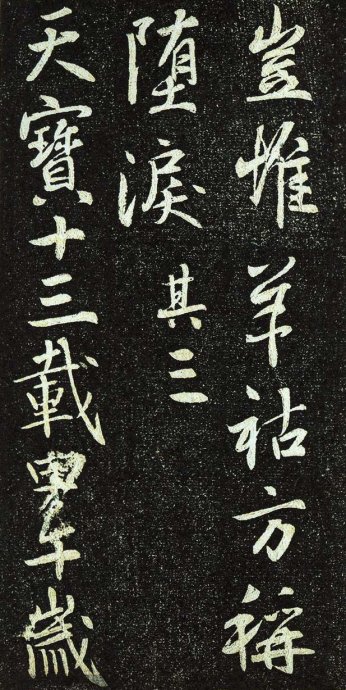 豈惟羊祜方稱
墮淚其三
天寶十三載甲午歲